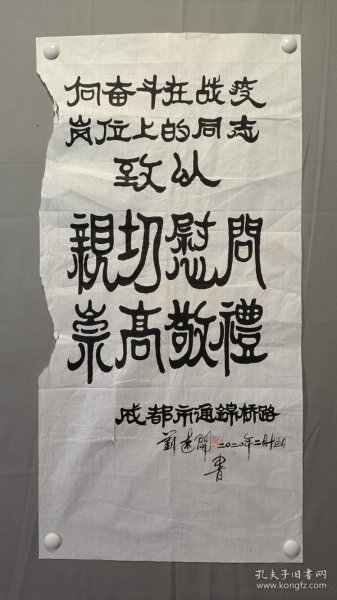 向奋斗在战疫
岗位上的同志
致以
親切慰問
崇高敬禮
成都市通錦桥路
劉 開 二〇二〇年二月
書
孔夫子旧书网
www.kongfz.com